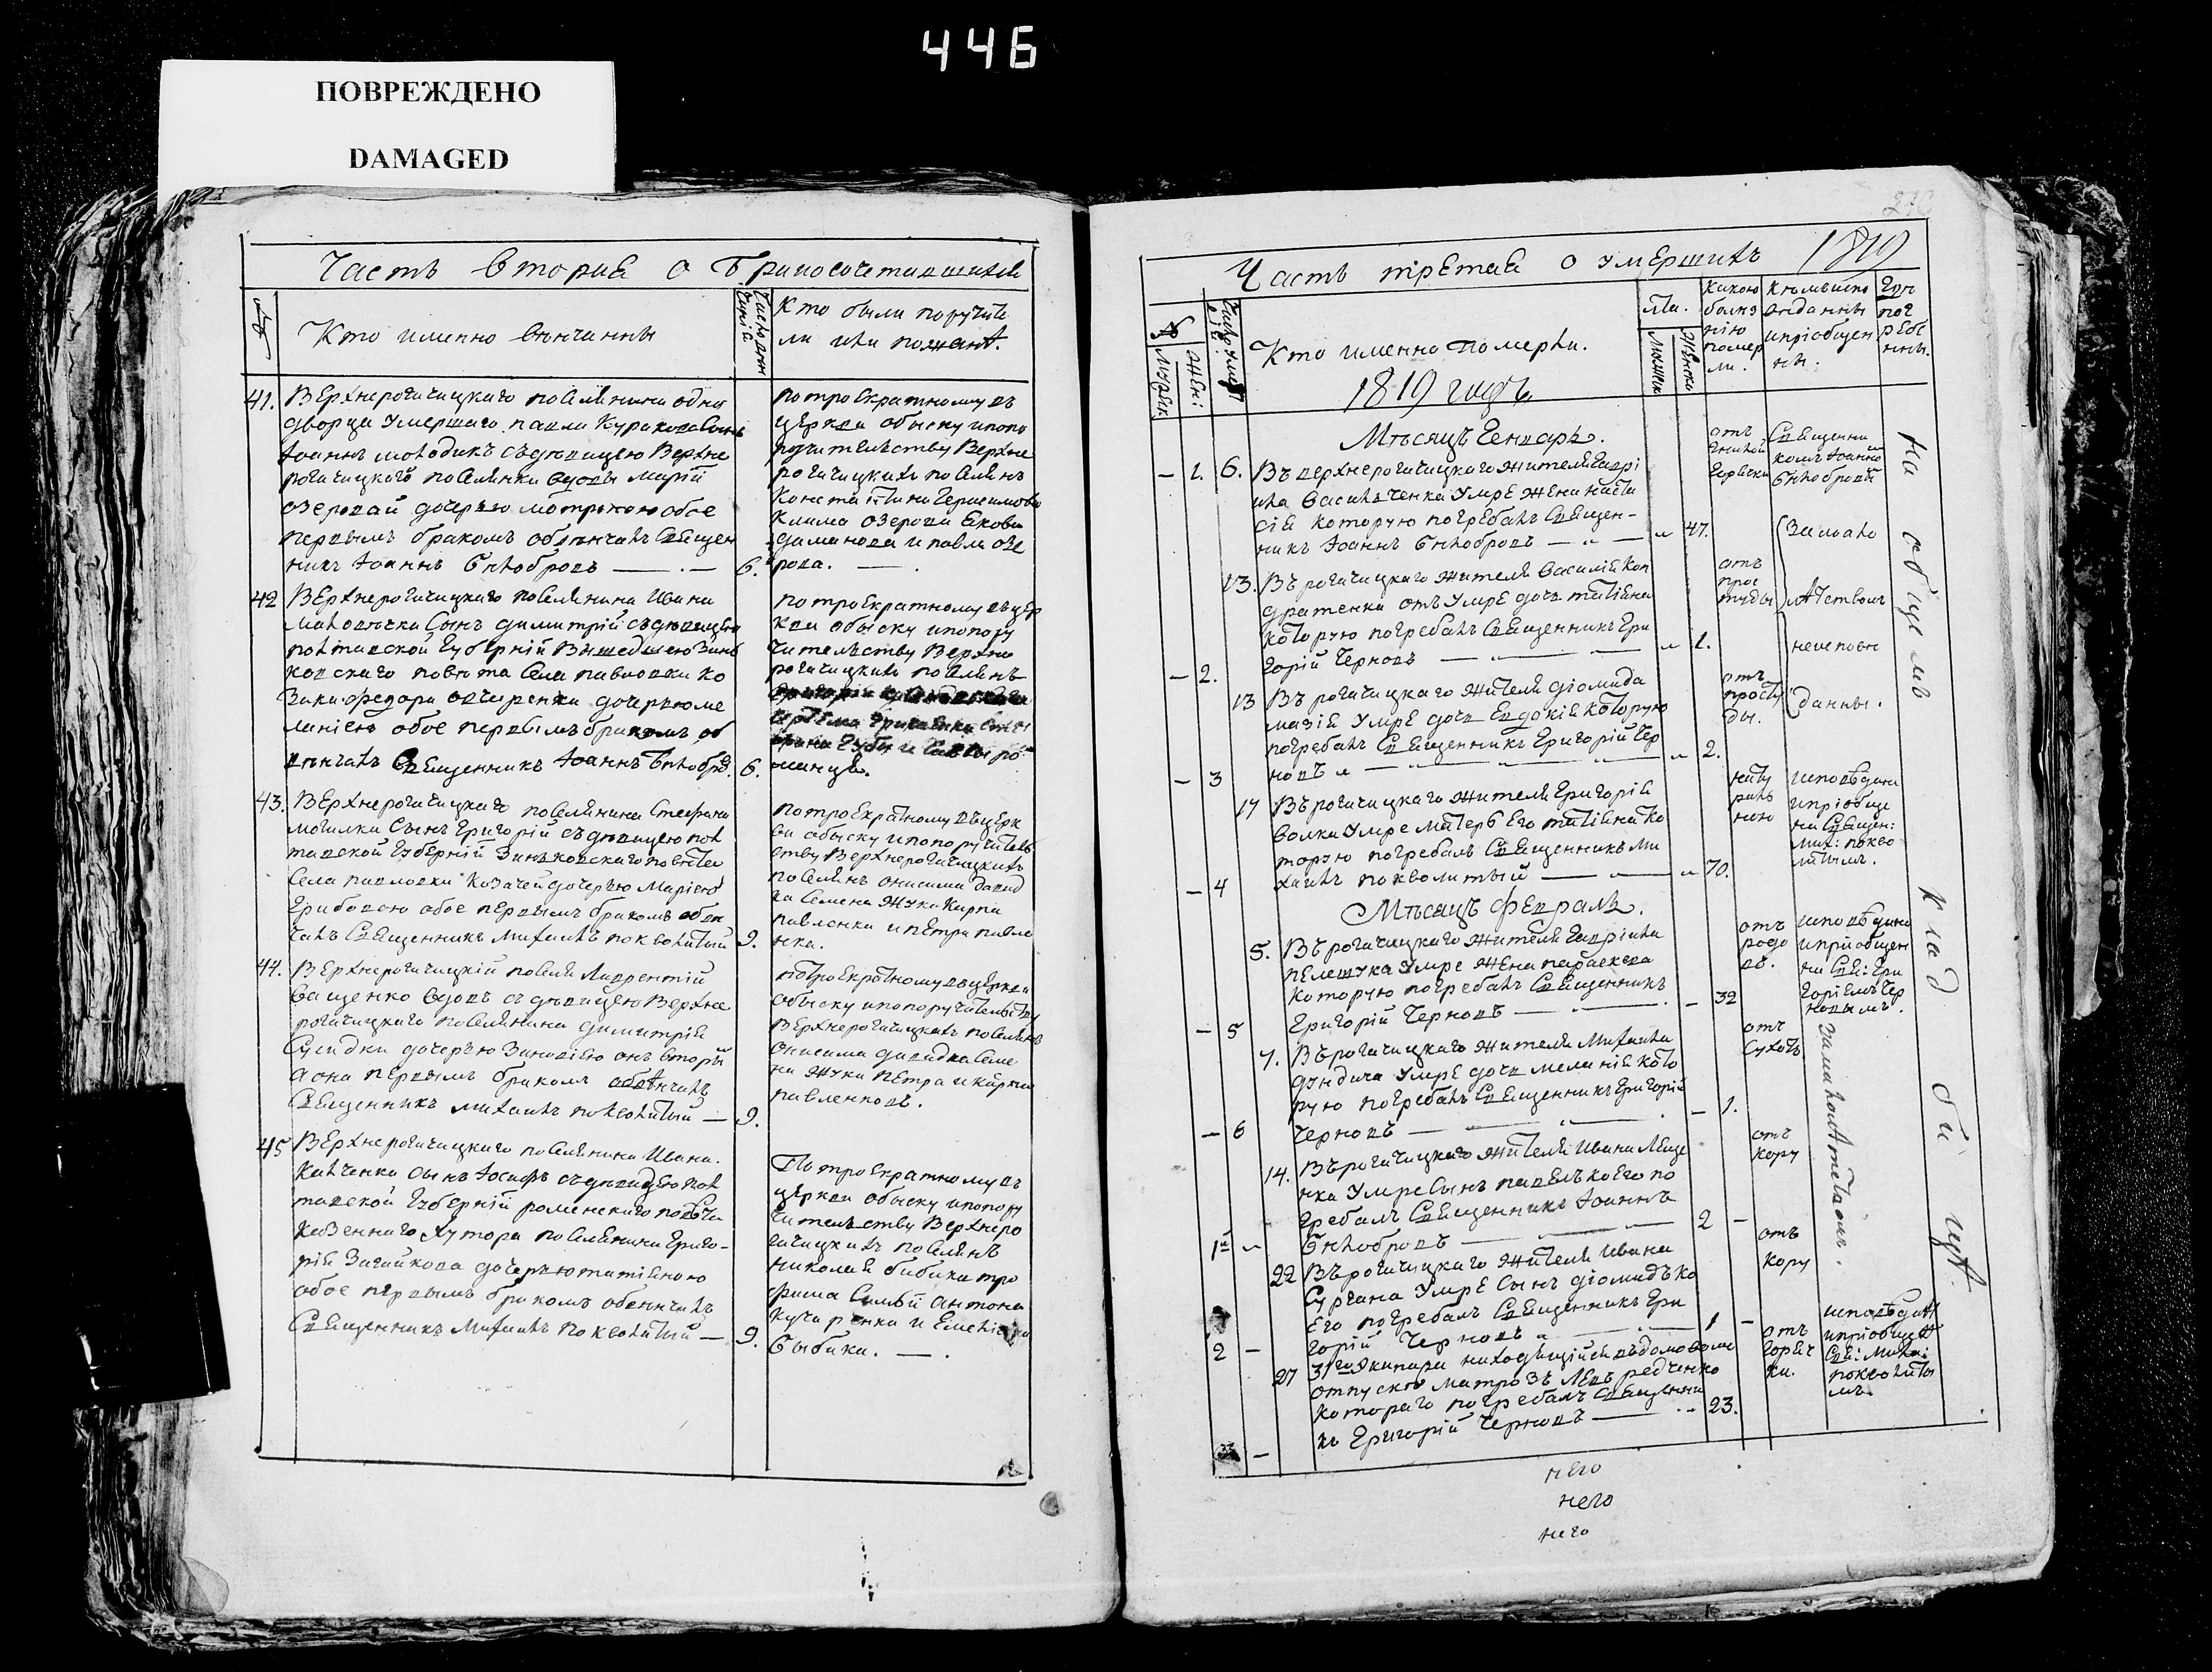 446
ПОВРЕЖДЕНО
DAMAGED
Часть вторая о бракосочетавшихся
Кто именно венчанны
Кто были поручите
ли или пожент.
41. Верхнерогачицкаго поселянина одно
дворца Умершаго павла Куракова Сынъ
Іоаннъ молодикъ съ девицею Верхне
рогачицкаго поселянки вдовы Маріи
озеровой дочерью мотроною обое
первымъ бракомъ обвенчалъ Священ
никъ Іоаннъ Белобровъ — 6.
потроекратному въ
церкви обыску ипопо
ручителству Верхне
рогачицкихъ поселянъ
Константина Герасимова
Клима озерова Якова
и павла озе
рова.
42 Верхнерогачицкаго поселянина Ивана
Сынъ димитрій съ девицею
полтавской Губерніи Вышедшею Зинь
ковскаго повета Села павловки ко
зака федора дочерью ме
ланіею обое первымъ бракомъ об
венчалъ Священникъ Іоаннъ Белобро. 6.
потроекратному въ цер
кви обыску ипопору
чителству Верхне
рогачицкихъ поселянъ
43. Верхнерогачицкаго поселянина Стефана
могилки Сынъ Григорій съ девицею пол
тавской Губерніи Зиньковскаго повета
Села павловки козачей дочерью Маріею
Грибовою обое первымъ бракомъ обвен
чалъ Священникъ Михаилъ поквалитый 9.
потроекратному въ церк
ви обыску ипопоручитель
ству Верхнерогачицкихъ
поселянъ онисима давид
ка Семена Жука Карпа
павленка и петра павле
нка.
44. Верхнерогачицкій поселя Лаврентій
Ващенко вдовъ съ девицею Верхне
рогачицкаго поселянина димитрія
дочерью Зиновіею онъ вторы
а она первымъ бракомъ обвенчалъ
Священникъ Михаилъ поквалитый — 9.
потроекратному въ церкви
обыску ипопоручительству
Верхнерогачицкихъ поселянъ
онисима давидка Семе
на Жука Петра и карпа
павленковъ.
45 Верхнерогачицкаго поселянина Ивана
Калченка Сынъ Іосифъ съ девицею пол
тавской Губерніи роменского повета
казеннаго Хутора поселянина Григо-
рія дочерью татіяною
обое первымъ бракомъ обвенчалъ
Священникъ Михаилъ поквалитый — 9.
Потроекратному въ
церкви обыску ипопору
чителству Верхнеро
гачицкихъ поселянъ
николая бибика тро
фима антона
и
бибика.
Часть третая о умершихъ 1819
Кто именно померли.
1819 года
лета.
Какою
болез
нію
помер
ли.
Кемъ испо
веданны
ипріобщен
ны.
Где
пог
ребе
нны.
Месяцъ Генварь.
- 1. 6. Въ верхнерогачицкаго жителя Гаврі
ила Васильченка Умре жена наста
сія которую погребалъ Священ-
никъ Іоаннъ Белобровъ — 47.
отъ
горячки
Священни
комъ Іоанно
Белобровы
13. Въ рогачицкаго жителя Василія Кон
дратенка отъ Умре дочь татіяна
которую погребалъ Священникъ Гри
- 2. горій Черновъ — 1.
отъ
прос
туды
За мало
летствомъ
неиспове
данны.
13 Въ рогачицкаго жителя діомида
Умре дочь Евдокія которую
погребалъ Священникъ Григорій Чер
- 3 новъ — 2.
отъ
просту
ды.
17 Въ рогачицкаго жителя Григорія
волка Умре матерь Его татіяна ко
торую погребалъ Священникъ Ми
- 4 хаилъ поквалитый — 70.
нату
раль
ною
исповедана
ипріобще
на Священ:
Мих: поква
литымъ.
Месяцъ февраль.
5. Въ рогачицкаго жителя Гавріила
пелешука Умре жена параскева
которую погребалъ Священникъ
- 5 Григорій Черновъ — 32
отъ
родо
въ.
исповедана
ипріобщен
на Свя: Гри
горіемъ Чер
новымъ.
7. Въ рогачицкаго жителя Михаила
дундича Умре дочь меланія кото
рую погребалъ Священникъ Григорій
- 6 Черновъ — 1.
отъ
сухотъ
14. Въ рогачицкаго жителя Ивана Леще
нка Умре Сынъ павелъ коего по
гребалъ Священникъ Іоаннъ
1й Белобровъ — 2 -
отъ
кору
22 Въ рогачицкаго жителя Ивана
Сургана Умре Сынъ діомидъ ко
его погребалъ Священникъ Гри
2 - горій Черновъ — 1 -
отъ
кору
27 31го Экипажа находящійся въ домовом
отпуске матрозъ Левъ редченко
котораго погребалъ Священни
къ Григорій Черновъ — 23.
отъ
горяч
ки.
исповеданъ
ипріобщенъ
Свя: Миха:
поквалиты
мъ.
За малолетствомъ.
На общемъ кладбищѣ
него
него
него